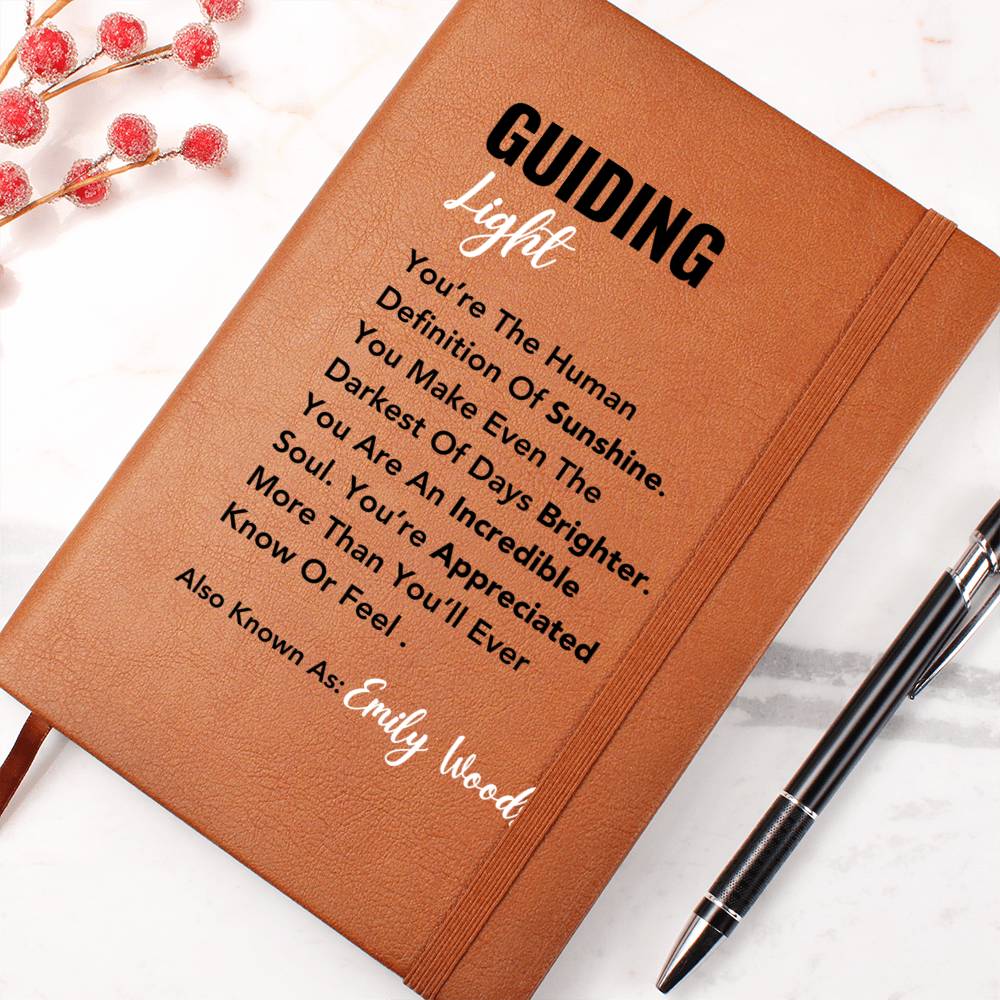 GUIDING
Light
You're The Human
Definition Of Sunshine.
You Make Even The
Darkest Of Days Brighter.
You Are An Incredible
Soul. You're Appreciated
More Than You'll Ever
Know Or Feel .
Also Known As: Emily Wood